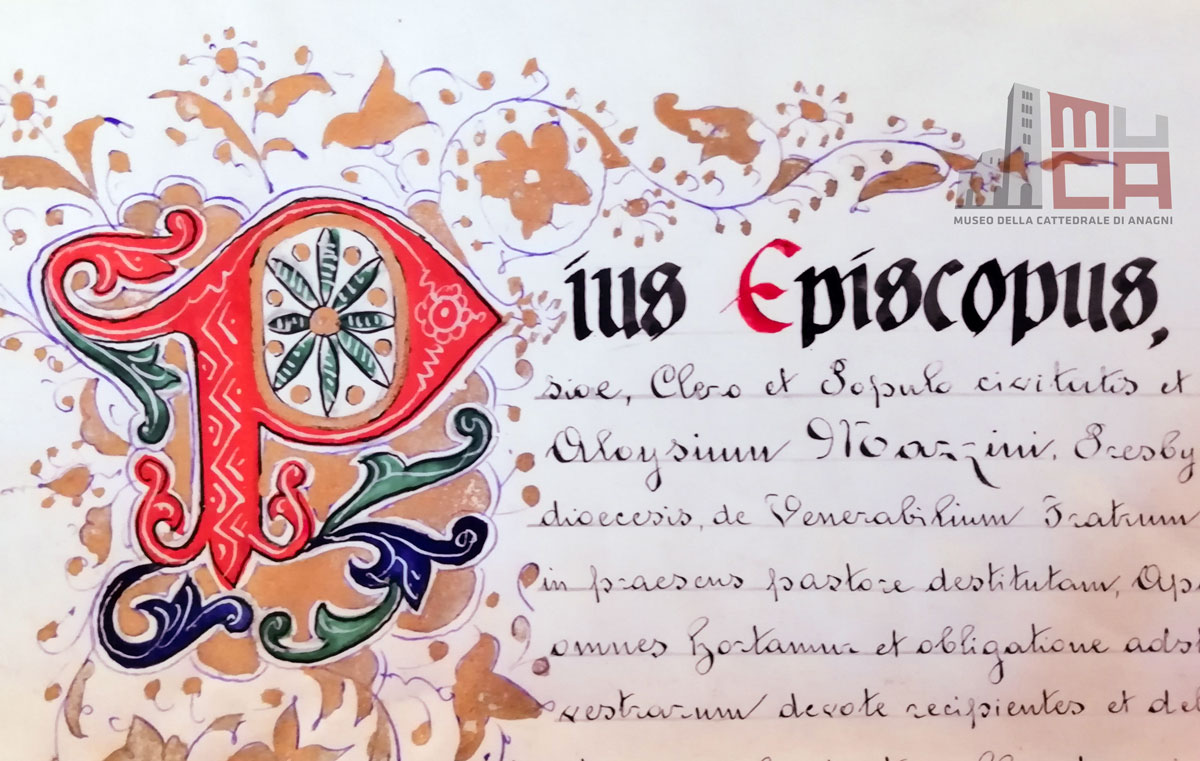 MUCA
MUSEO DELLA CATTEDRALE DI ANAGNI
Pius Episcopus,
sioe, Clero et Populo civitatis et
Aloysium Mazzini, Presby
dioecesis, de Venerabilium Fratrum
in praesens pastore destitutam, Ap
omnes hortamur et obligatione ads
vestrarum devote recipientes et de